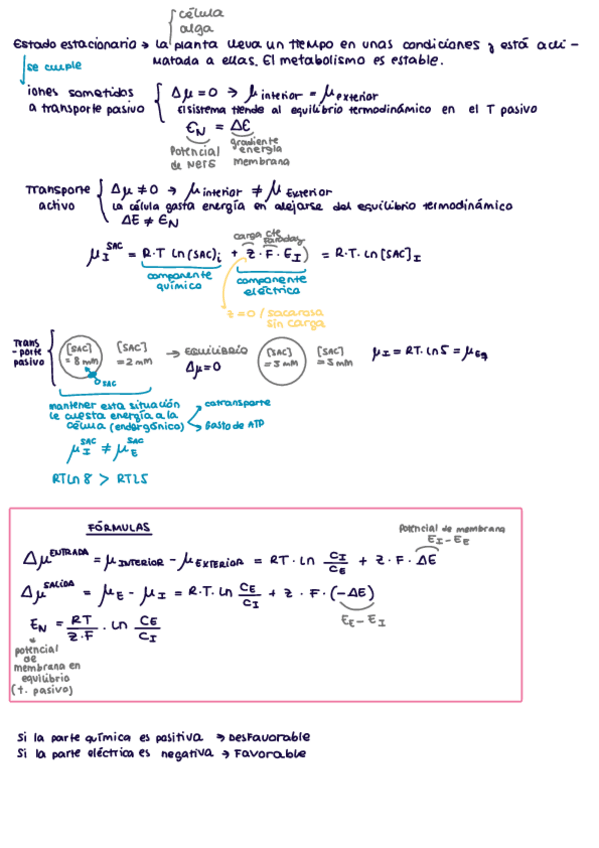 célula
alga
Estado estacionario → la planta lleva un tiempo en unas condiciones y está acli-
matada a ellas. El metabolismo es estable.
se cumple
iones sometidos
a transporte pasivo
Δμ = 0 → μ interior = μ exterior
El sistema tiende al equilibrio termodinámico en el T pasivo
EN = ΔE
Potencial de Ners
gradiente energía membrana
Transporte activo
Δμ ≠ 0 → μ interior ≠ μ Exterior
La célula gasta energía en alejarse del equilibrio termodinámico
ΔE ≠ EN
carga cte Faraday
μI^SAC = R·T ln(SAC)i + z·F·EI) = R·T·ln[SAC]I
componente químico
componente eléctrica
z=0/sacarosa
sin carga
Transporte pasivo
[SAC] = 8 mM
[SAC] = 2 mM
→ EQUILIBRIO
Δμ=0
[SAC] = 5 mM
[SAC] = 5 mM
μI = RT·ln5 = μEq
SAC
mantener esta situación
le cuesta energía a la
célula (endergónico)
cotransporte
Gasto de ATP
μI^SAC ≠ μE^SAC
RTln 8 > RTl5
FÓRMULAS
Potencial de membrana
EI-EE
Δμ^ENTRADA = μINTERIOR - μEXTERIOR = RT·ln CI/CE + z·F·ΔE
Δμ^SALIDA = μE - μI = R·T·ln CE/CI + z·F·(-ΔE)
EE-EI
EN = RT/z·F · ln CE/CI
potencial
de
membrana en
equilibrio
(t. pasivo)
Si la parte química es positiva → Desfavorable
Si la parte eléctrica es negativa → Favorable